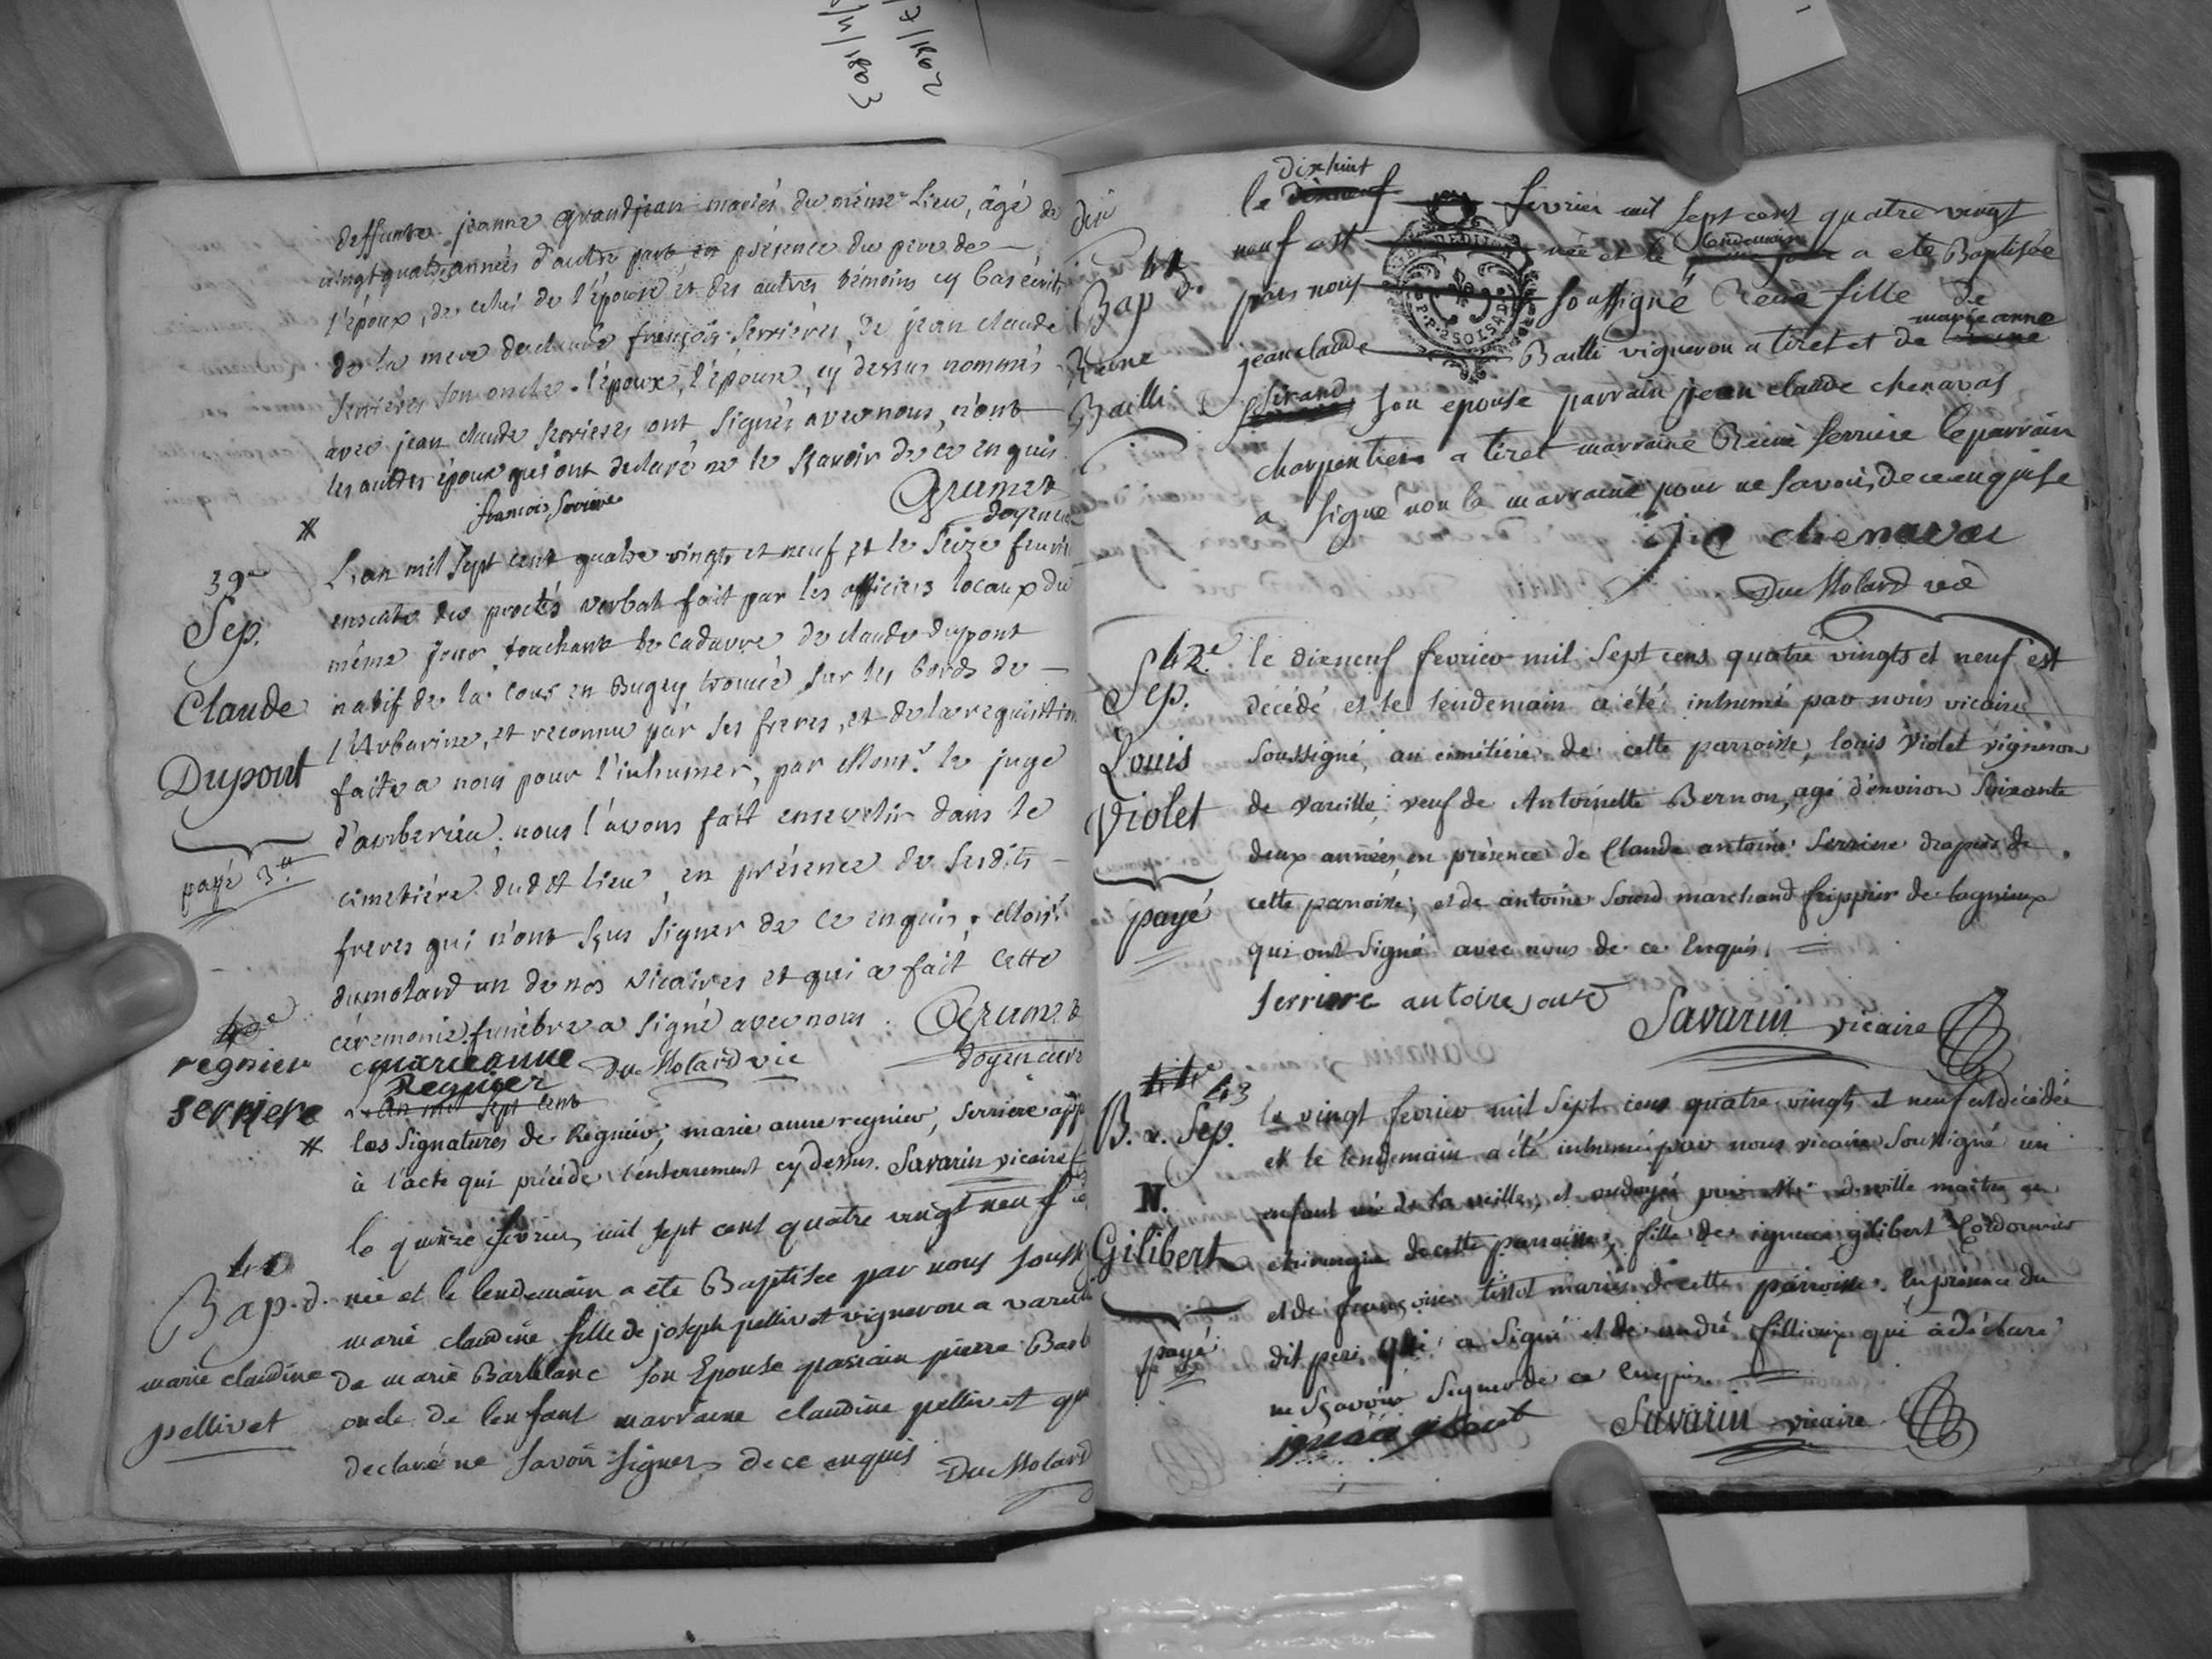 /7/1802
/4/1803
deffunte jeanne grandjean mariés du même lieu, âgé de
vingt quatre années d'autre part en présence du pere de
l'époux, de celui de l'épouse et des autres témoins cy bas écrits
de la mere de claude françois serrieres, de jean claude
serrieres son oncle. l'époux, l'épouse, cy dessus nommés
avec jean claude serrieres ont signés avec nous, non
les autres époux qui ont declaré ne le sçavoir de ce enquis
françois serriere
Grumet
doyen
39e
Sep.
Claude
Dupont
payé 3#
L'an mil sept cent quatre vingts et neuf et le seize fevrier
ensuite du procès verbal fait par les officiers locaux du
même jour touchant le cadavre de claude dupont
natif de la cour en Bugey trouvé sur les bords de
l'Arbarine, et reconnu par ses freres, et de la requisition
faite a nous pour l'inhumer, par Monsr. le juge
d'ambérieu. nous l'avons fait ensevelir dans le
cimetière dudit lieu, en présence de sesdits
freres qui n'ont sçus signer de ce enquis. Moisr.
dumolard un de nos vicaires et qui a fait cette
céremonie funèbre a signé avec nous. Grumet
marieanne Du Molard vic doyen curé
Regnier
L'an mil sept cent
40e
regnier
serriere
les signatures de Regnier, marie anne regnier, serriere app
à l'acte qui précéde l'enterrement cy dessus. Savarin vicaire
40
Bap. d.
marie claudine
pellivet
le quinze fevrier mil sept cent quatre vingt neuf
née et le lendemain a ete Baptisée par nous souss
marie claudine fille de joseph pellivet vigneron a vareil
de marie Barblanc son Epouse parrain pierre Barb
oncle de lenfant marraine claudine pellivet q
declaré ne savoir signer de ce enquis Du Molard
41
Bap d.
Reine
Bailli
dixhuit
le dixneuf fevrier mil sept cent quatre vingt
lendemain
neuf est née et le a ete Baptisée
par nous soussigné Reine fille de
marie anne
jean claude Bailli vigneron a tiret et de
sirand son epouse parrain jean claude chenavas
charpentier a tiret marraine Reine serriere le parrain
a signé non la marraine pour ne savoir de ce enquise
j c chenavas
Du Molard vic
42e
Sep.
Louis
Violet
payé
le dixneuf fevrier mil sept cens quatre vingts et neuf est
décédé et le lendemain a été inhumé par nous vicaire
soussigné, au cimétiére de cette parroisse, louis violet vigneron
de vareille, veuf de Antoinette Bernon, agé d'environ soixante
deux années en présence de Claude antoine serriere drapier de
cette parroisse, et de antoine sourd marchand frippier de lagnieux
qui ont signé avec nous de ce enquis.
serriere antoine sourd
Savarin vicaire
44e 43
B. x. Sep.
N.
Gilibert
payé
le vingt fevrier mil sept cens quatre vingts et neuf est décédée
et le lendemain a été inhumé par nous vicaire soussigné un
enfant né de la veille, et ondoyé par Mr. maitre en
chirurgie de cette parroisse, fille de ignace gilibert Cordonnier
et de françoise tissot mariés de cette parroisse. En présence du
dit pere qui a signé et de andré fillioux qui a déclaré
ne sçavoir signer de ce enquis.
ignace gilibert
Savarin vicaire